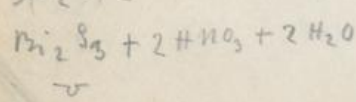 Bi₂S₃ + 2HNO₃ + 2H₂O